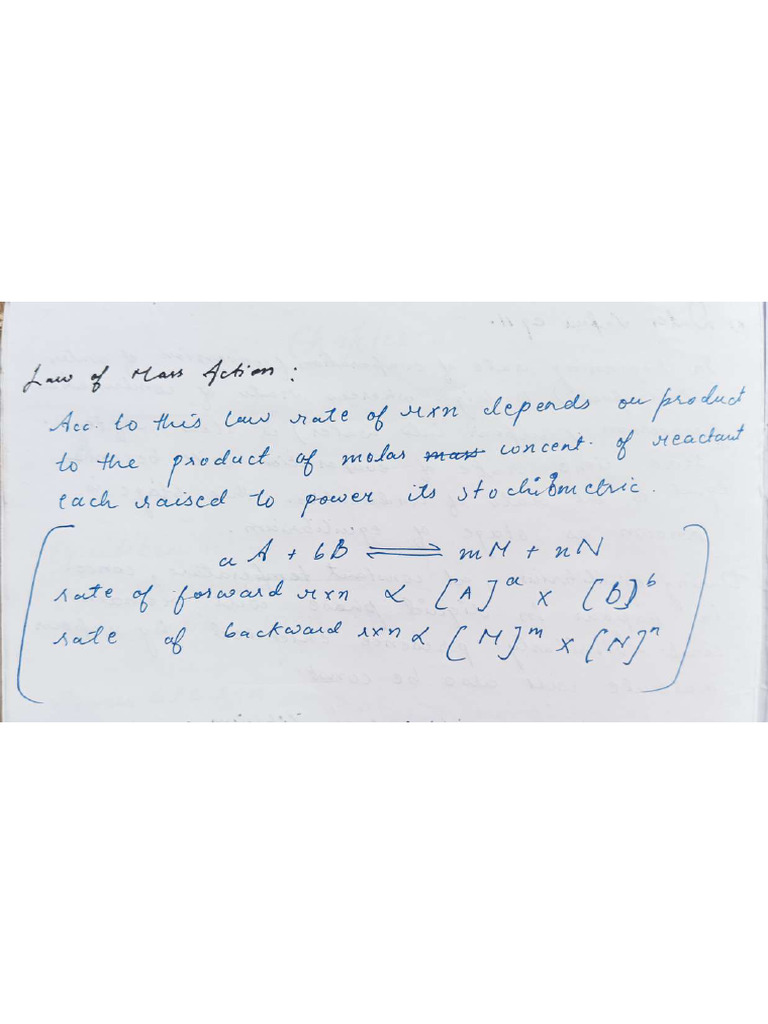 Law of Mass Action:
Acc. to this law rate of rxn depends on product
to the product of molar mass concent. of reactant
each raised to power its stochiometric.
aA + bB ⇌ mM + nN
rate of forward rxn ∝ [A]^a × [B]^b
rate of backward rxn ∝ [M]^m × [N]^n